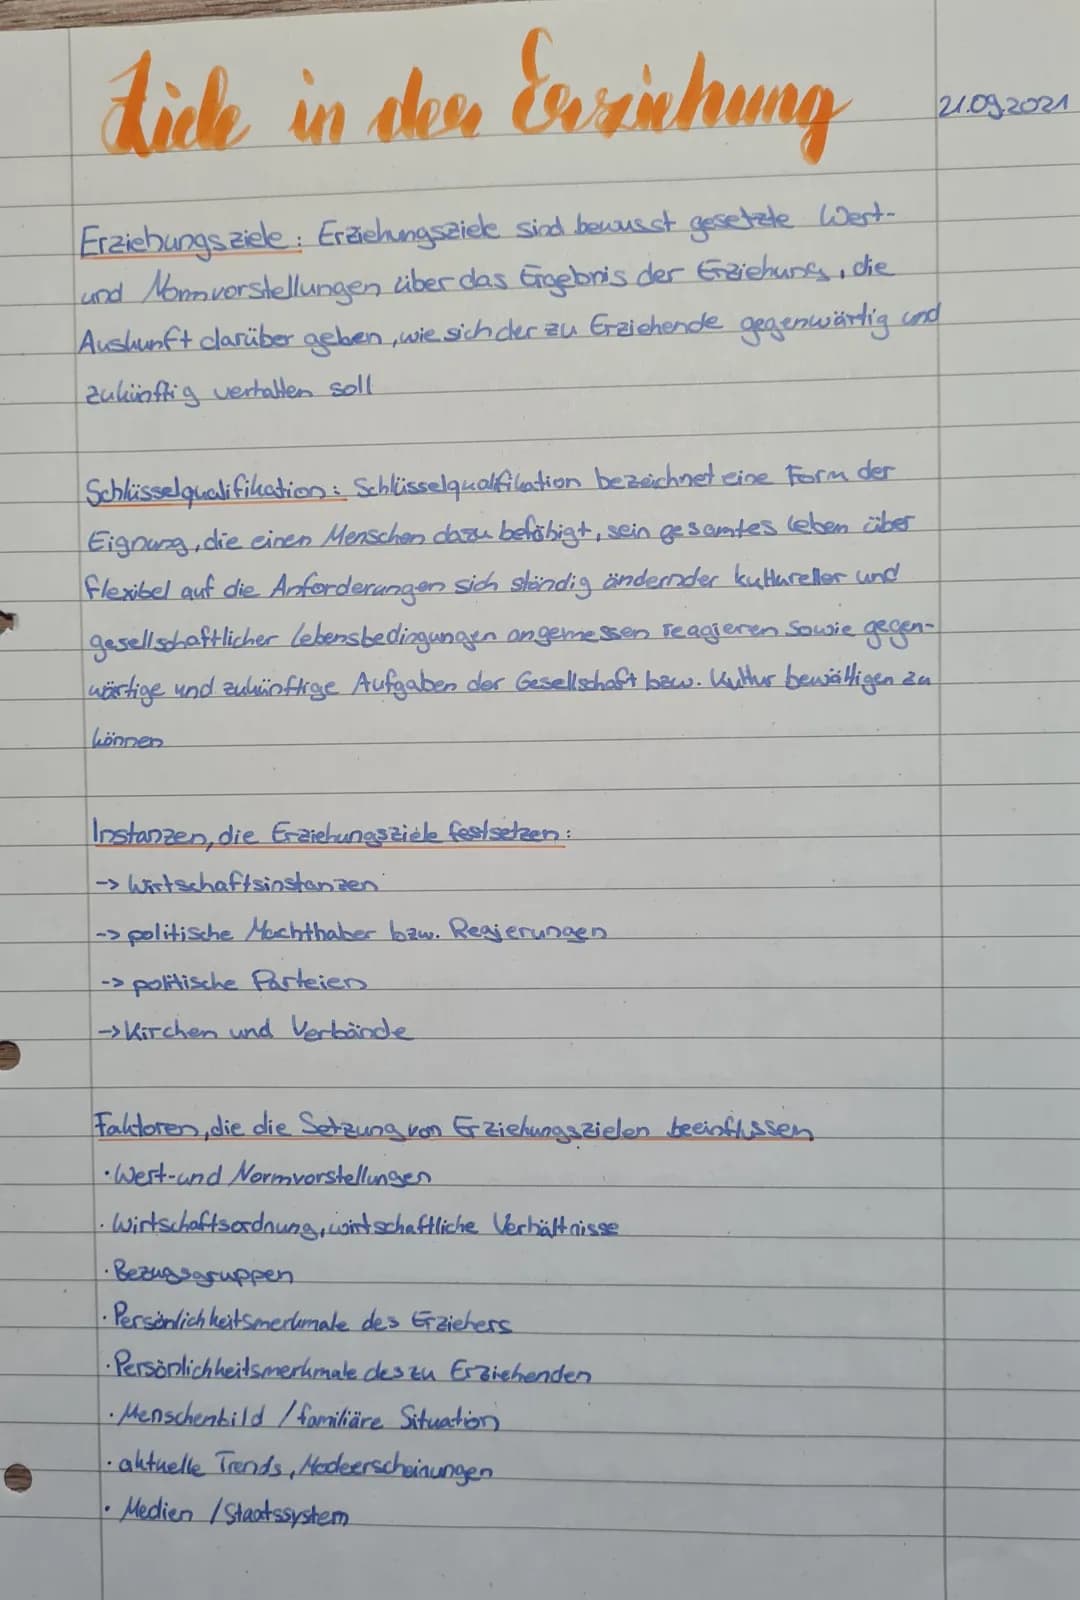 Ziele in der Erziehung
21.09.2021
Erziehungsziele: Erziehungsziele sind bewusst gesetzte Wert-
und Normvorstellungen über das Ergebnis der Erziehung, die
Auskunft darüber geben, wie sich der zu Erziehende gegenwärtig und
zukünftig verhalten soll
Schlüsselqualifikation: Schlüsselqualifikation bezeichnet eine Form der
Eignung, die einen Menschen dazu befähigt, sein gesamtes Leben über
flexibel auf die Anforderungen sich ständig ändernder kultureller und
gesellschaftlicher Lebensbedingungen angemessen reagieren sowie gegen-
wärtige und zukünftige Aufgaben der Gesellschaft bzw. Kultur bewältigen zu
können
Instanzen, die Erziehungsziele festsetzen:
-> Wirtschaftsinstanzen
-> politische Machthaber bzw. Regierungen
-> politische Parteien
-> Kirchen und Verbände
Faktoren, die die Setzung von Erziehungszielen beeinflussen
· Wert-und Normvorstellungen
· Wirtschaftsordnung, wirtschaftliche Verhältnisse
· Bezugsgruppen
· Persönlichkeitsmerkmale des Erziehers
· Persönlichkeitsmerkmale des zu Erziehenden
· Menschenbild / familiäre Situation
· aktuelle Trends, Modeerscheinungen
· Medien / Staatssystem